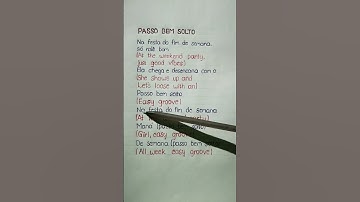 PASSO BEM SOLTO
Na festa do fim de semana
só role bom
(At the weekend party
just good vibes)
Ela chega e desencana com o
(She shows up and
Let's loose with an)
Passo bem solto
(Easy groove)
Na festa do fim de semana
(At
Mana (passo
(Girl, easy groove)
De semana (passo bem
(All week, easy groove)